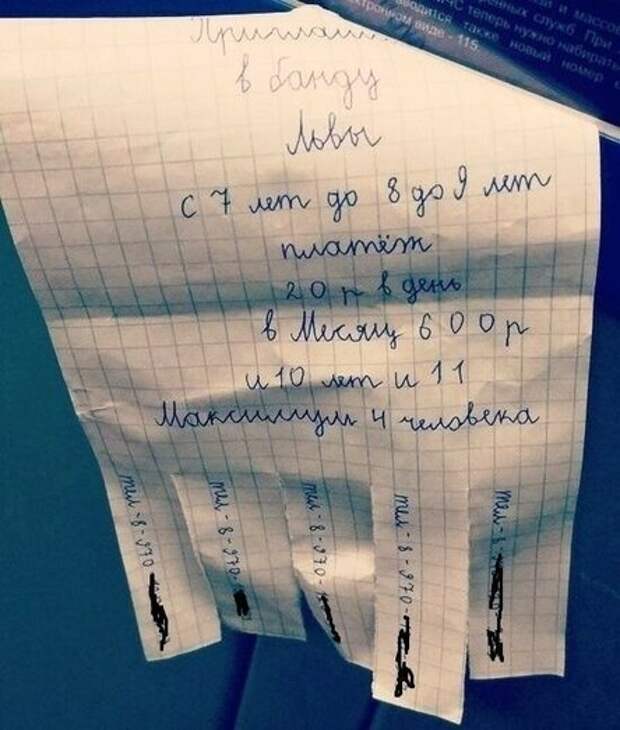 и массо
служб. При
МЧС теперь нужно набирать
вводится также новый номер
виде - 115.
Приглаш
в банду
Львы
с 7 лет до 8 до 9 лет
платёж
20 р в день
в Месяц 600р
и 10 лет и 11
Максимум 4 человека
тел-8-970-
тел-8-970-
тел-8-970-
тел-8-970-
тел-8-